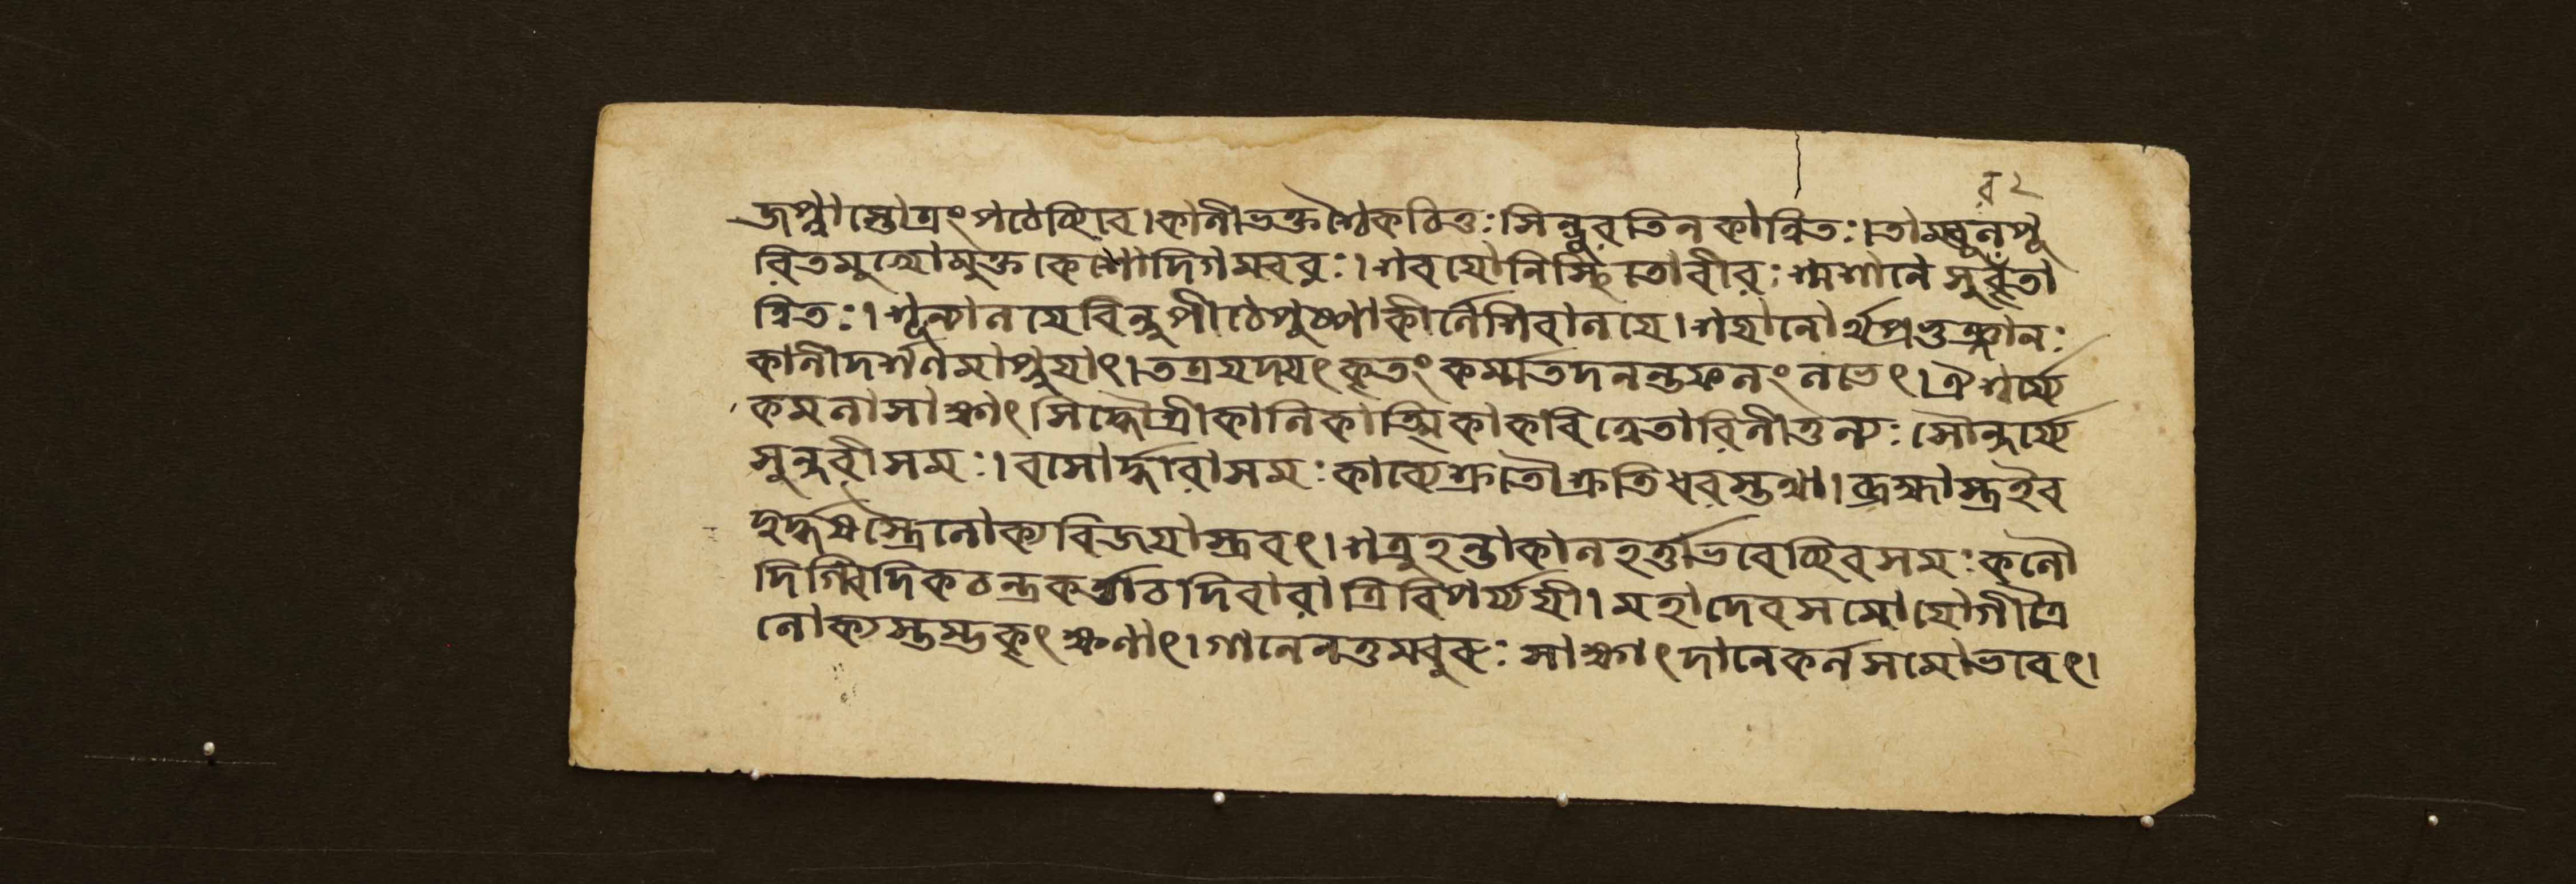 ৪২
জপ্ত্বাস্তোত্রংপঠেচ্ছিবে।কালীভক্তশ্চৈকচিত্তঃসিন্দূরতিলকান্বিতঃ।তাম্বূলপূ
রিতমুখোমুক্তকেশোদিগমবরঃ।শবযোনিস্থিতোবীরঃশ্মশানেসুরতা
ন্বিতঃ।শূন্যালয়েবিন্দুপীঠেপুষ্পাকীর্নেশিবালয়ে।শয়ানোর্থপ্রভুঞ্জানঃ
কালীদর্শণমাপ্নুয়াৎ।তত্রযদ্যৎকৃতংকর্ম্মতদনন্তফলংলভেৎ।ঐশ্বর্য্যে
কমলাসাক্ষাৎসিদ্ধৌশ্রীকালিকাত্মিকাকবিত্বেতারিনীতুল্যঃসৌন্দর্য্যে
সুন্দরীসমঃ।বসোর্দ্ধারাসমঃকাব্যেশ্রুতৌশ্রুতিধরস্তথা।ব্রহ্মাস্ত্রইব
দুর্দ্ধর্ষস্ত্রৈলোক্যবিজয়াস্ত্রবৎ।শত্রুহন্তাকালহর্ত্তাভবেচ্ছিবসমঃকলৌ
দিগ্বিদিকচন্দ্রকর্ত্তাচদিবারাত্রিবিপর্য্যয়ী।মহাদেবসমোযোগীত্রৈ
লোক্যস্তম্ভকৃৎক্ষণাৎ।গানেনতুমবুরুঃসাক্ষাৎদানেকর্নসমোভবেৎ।